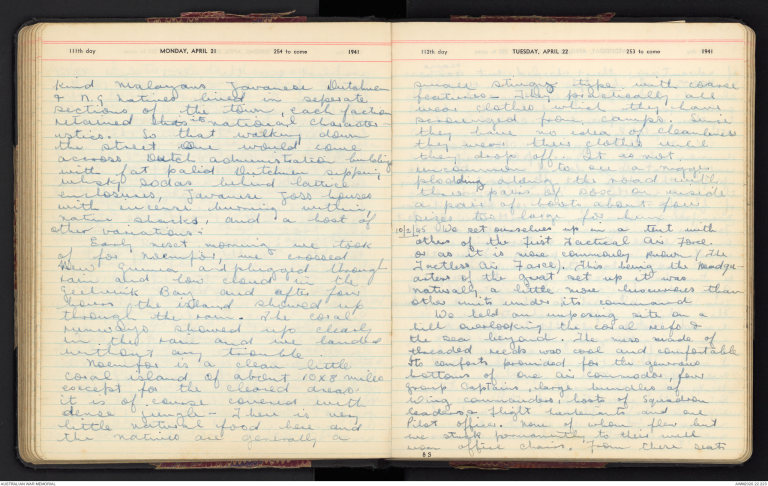 111th day MONDAY, APRIL 21 254 to come 1941
kind Malayans Javanese Dutchmen
& N.G natives lived in seperate
sections of the town, each faction
retained its national character
istics. So that walking down
the street one would come
accross Dutch administration buildings
with fat palid Dutchmen sipping
whisky sodas behind lattice
enclosures, Javanese Joss houses
with incense burning within,
native shacks, and a host of
other variations.
Early next morning we took
off for Noemfor, we crossed
New Guinea and plugged through
rain and low cloud in the
Geelvink Bay and after four
hours the island showed up
through the rain. The coral
runways showed up clearly
in the rain and we landed
without any trouble
Noemfor is a clean little
coral island of about 10x8 miles
except for the cleared areas
it is of course covered with
dense jungle - There is very
little natural food here and
the natives are generally a
112th day TUESDAY, APRIL 22 253 to come 1941
small stringy type with coarse
features. They practically all
wear clothes which they have
scrounged from camps. Since
they have no idea of cleanliness
they wear their clothes until
they drop off. It is not
uncommon to see a nigger
plodding along the road with
three pairs of sox on inside
a pair of boots about four
sizes too large for him
10/2/45 We set ourselves up in a tent with
others of the First Tactical Air Force
or as it is more commonly known (The
Tactless Air Farce). This being the Headqu-
arters of the great set up it was
naturally a little more luxurious than
other units under its command
We held an imposing site on a
hill overlooking the coral reefs &
the sea beyond. The mess made of
threaded reeds was cool and comfortable
Its comforts provided for the generous
bottoms of one air commodor, few
group Captains, large bundles of
Wing commanders, hosts of Squadron
leaders, flight lieutenants and one
Pilot officer. None of whom flew but
we stuck permanently to their well
worn office chairs. From there seats
83
AUSTRALIAN WAR MEMORIAL